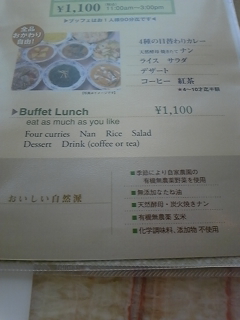 ¥1,100
11:00am〜3:00pm
全品
おかわり
自由!
4種の日替わりカレー
天然酵母 焼きたて ナン
ライス サラダ
デザート
コーヒー 紅茶
▶Buffet Lunch ¥1,100
eat as much as you like
Four curries Nan Rice Salad
Dessert Drink (coffee or tea)
おいしい自然派
■季節により自家農園の
有機無農薬野菜を使用
■無添加なたね油
■天然酵母・炭火焼きナン
■有機無農薬 玄米
■化学調味料、添加物 不使用